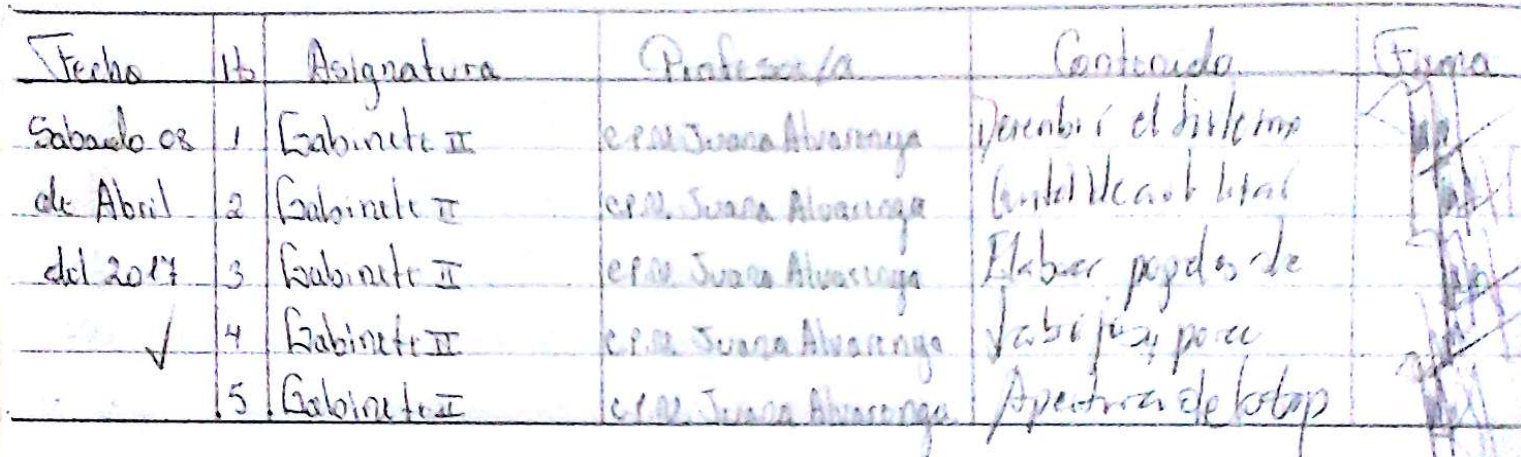 Fecha H Asignatura Profesor/a Contenido Firma
Sabado 08 1 Gabinete II C.P.N. Juana Alvarenga el sistema
de Abril 2 Gabinete II C.P.N. Juana Alvarenga
del 2017 3 Gabinete II C.P.N. Juana Alvarenga Elaborar papeles de
✓ 4 Gabinete II C.P.N. Juana Alvarenga para
5 Gabinete II C.P.N. Juana Alvarenga Apertura de